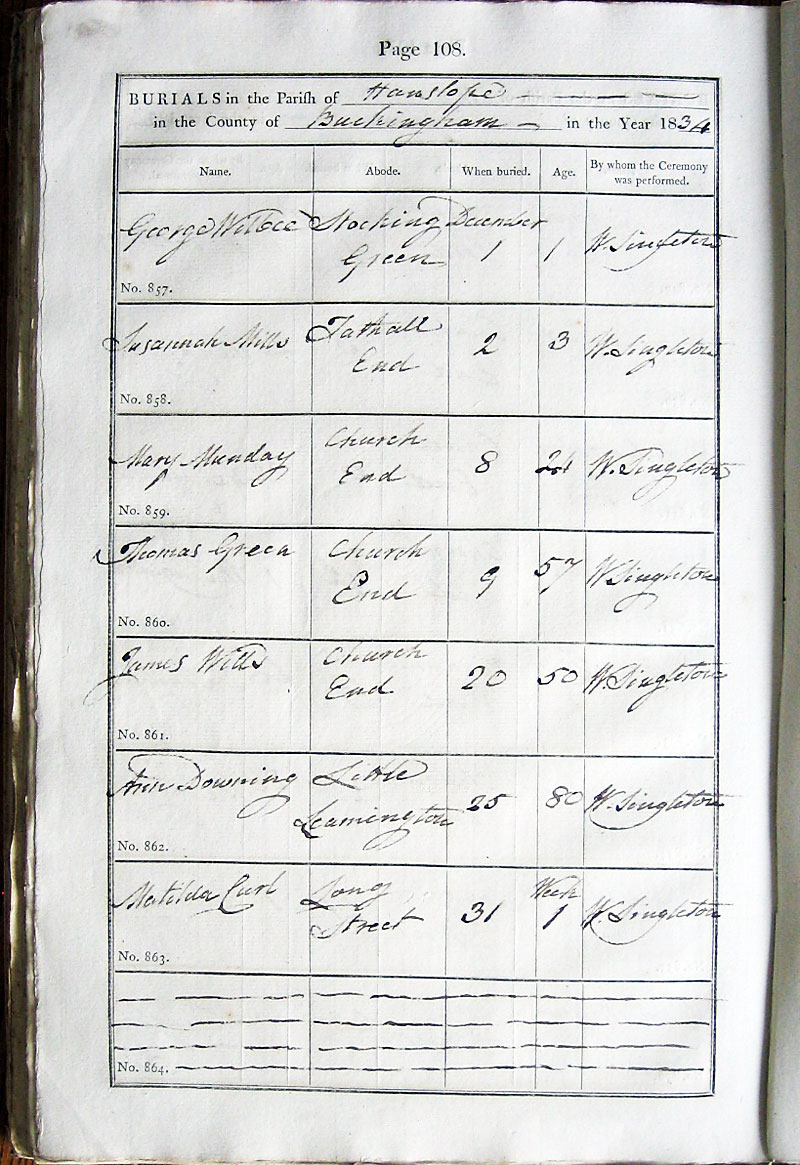 Page 108.
BURIALS in the Parish of Hanslope
in the County of Buckingham in the Year 1834
Name. Abode. When buried. Age. By whom the Ceremony was performed.
George Stocking December
Green 1 1 W. Singleton
No. 857.
Susannah Mills Tathall
End 2 3 W. Singleton
No. 858.
Mary Munday Church
End 8 W. Singleton
No. 859.
Thomas Green Church
End 9 57 W. Singleton
No. 860.
James Church
End 20 50 W. Singleton
No. 861.
Ann Downing Little
Leamington 25 80 W. Singleton
No. 862.
Matilda Curl Long Week
Street 31 1 W. Singleton
No. 863.
No. 864.